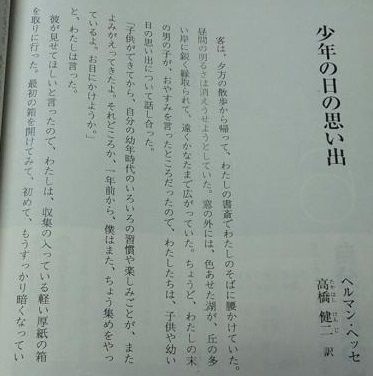 少年の日の思い出
ヘルマン・ヘッセ
高橋健二 訳
たかはし けんじ
客は、夕方の散歩から帰って、わたしの書斎でわたしのそばに腰かけていた。
昼間の明るさは消えうせようとしていた。窓の外には、色あせた湖が、丘の多
い岸に鋭く縁取られて、遠くかなたまで広がっていた。ちょうど、わたしの末
の男の子が、おやすみを言ったところだったので、わたしたちは、子供や幼い
日の思い出について話し合った。
「子供ができてから、自分の幼年時代のいろいろの習慣や楽しみごとが、また
よみがえってきたよ。それどころか、一年前から、僕はまた、ちょう集めをやっ
ているよ。お目にかけようか。」
と、わたしは言った。
彼が見せてほしいと言ったので、わたしは、収集の入っている軽い厚紙の箱
を取りに行った。最初の箱を開けてみて、初めて、もうすっかり暗くなってい